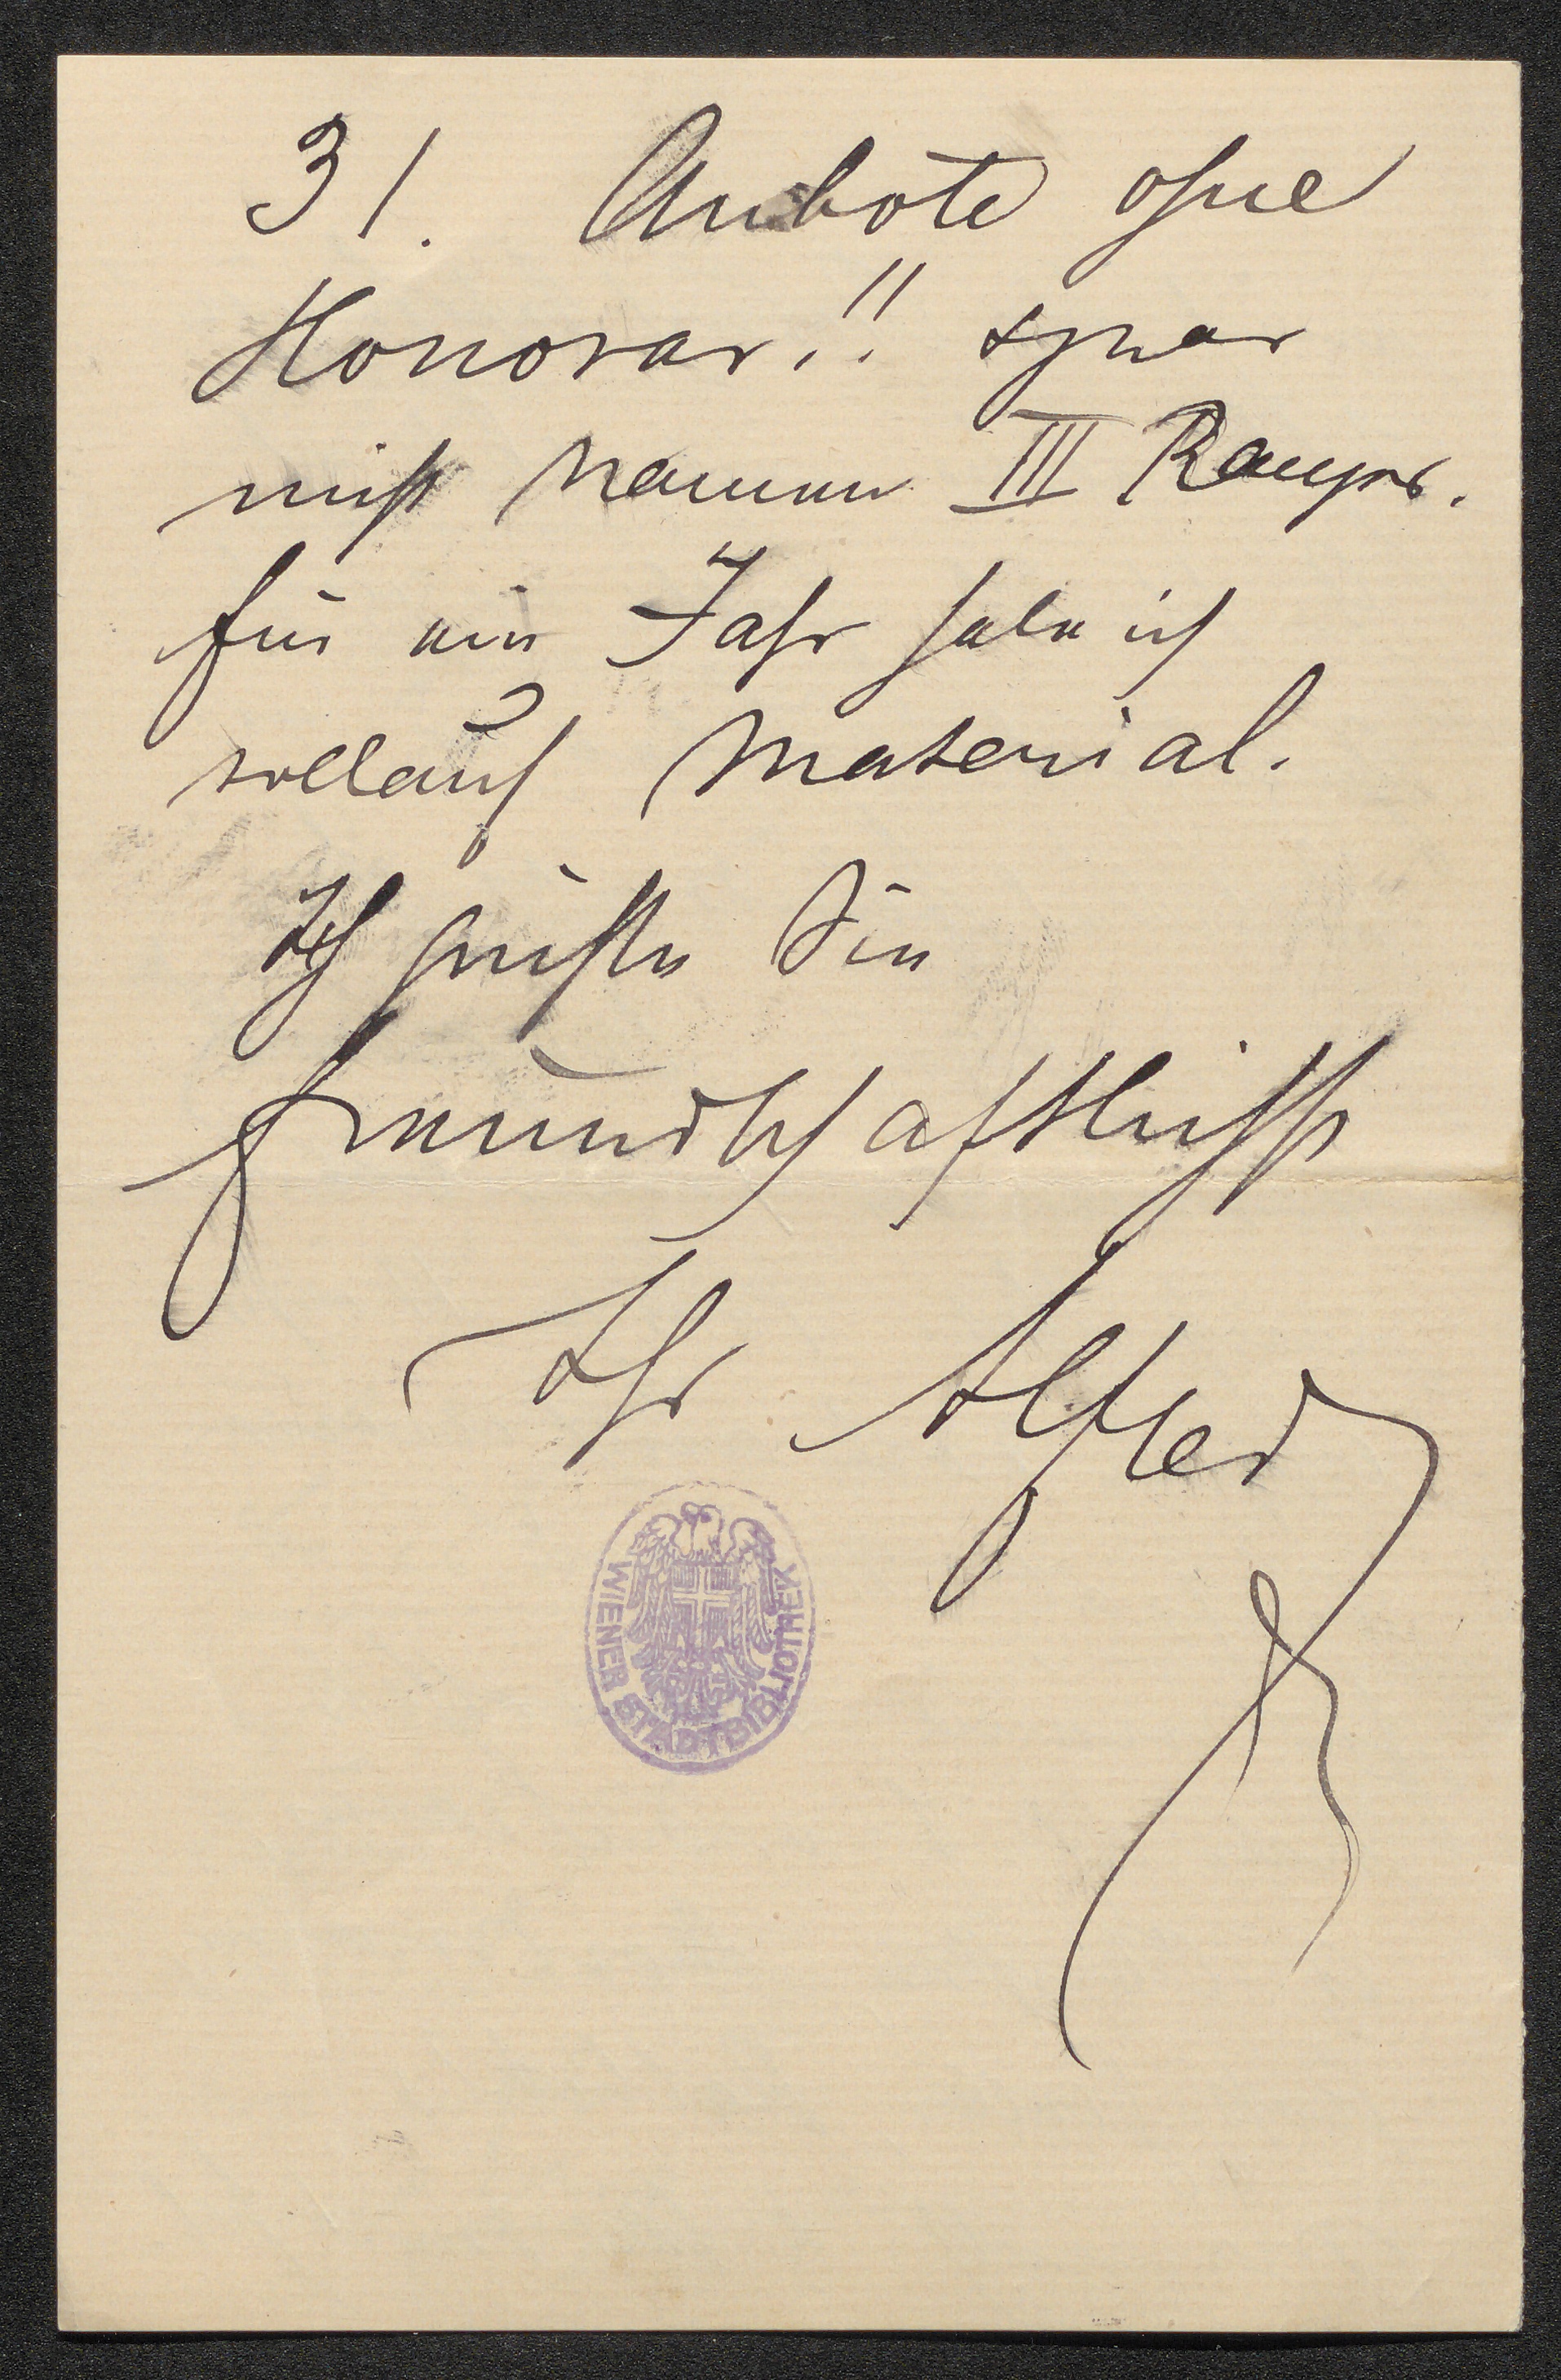 31. Anbote ohne
Honorar!! zwar
nicht Namen III Ranges.
Für ein Jahr habe ich
vollauf Material.
Ich grüße Sie
freundschaftlichst
Ihr Alfred
WIENER STADTBIBLIOTHEK